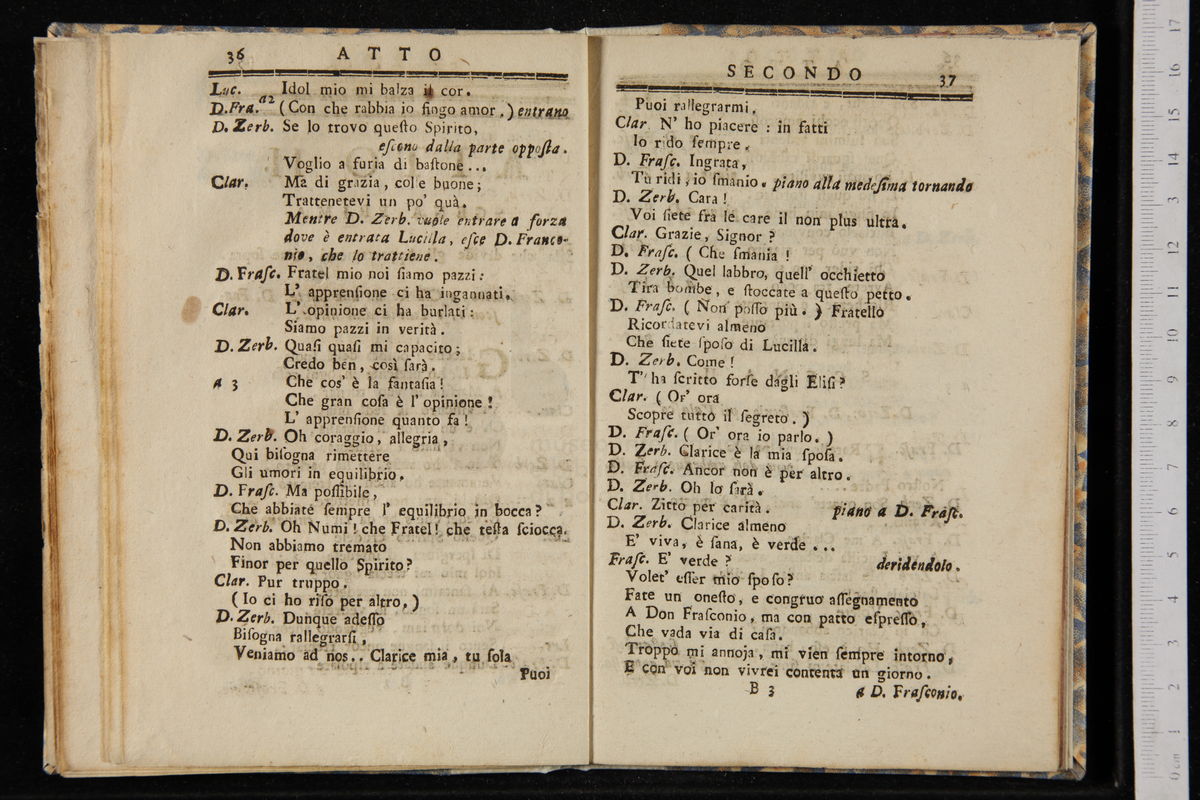 36 ATTO
Luc. Idol mio mi balza il cor.
D.Fra. a2 (Con che rabbia io fingo amor.) entrano
D. Zerb. Se lo trovo queſto Spirito,
eſcono dalla parte oppoſta.
Voglio a furia di baſtone...
Clar. Ma di grazia, col e buone;
Trattenetevi un po' quà.
Mentre D. Zerb. vuole entrare a forza
dove è entrata Lucilla, eſce D. Franco-
nio, che lo trattiene.
D. Fraſc. Fratel mio noi ſiamo pazzi:
L' apprenſione ci ha ingannati.
Clar. L' opinione ci ha burlati:
Siamo pazzi in verità.
D. Zerb. Quaſi quaſi mi capacito;
Credo ben, così ſarà.
a 3 Che cos' è la fantaſia!
Che gran coſa è l' opinione!
L' apprenſione quanto fa!
D. Zerb. Oh coraggio, allegria,
Qui biſogna rimettere
Gli umori in equilibrio.
D. Fraſc. Ma poſſibile,
Che abbiate ſempre l' equilibrio in bocca?
D. Zerb. Oh Numi! che Fratel! che teſta ſciocca.
Non abbiamo tremato
Finor per quello Spirito?
Clar. Pur truppo.
(Io ci ho riſo per altro.)
D. Zerb. Dunque adeſſo
Biſogna rallegrarſi,
Veniamo ad nos.. Clarice mia, tu ſola
Puoi
SECONDO 37
Puoi rallegrarmi.
Clar. N' ho piacere: in fatti
Io rido ſempre.
D. Fraſc. Ingrata,
Tu ridi, io ſmanio. piano alla medeſima tornando
D. Zerb. Cara!
Voi ſiete fra le care il non plus ultra.
Clar. Grazie, Signor?
D. Fraſc. (Che ſmania!
D. Zerb. Quel labbro, quell' occhietto
Tira bombe, e ſtoccate a queſto petto.
D. Fraſc. (Non poſſo più.) Fratello
Ricordatevi almeno
Che ſiete ſpoſo di Lucilla.
D. Zerb. Come!
T' ha ſcritto forſe dagli Eliſi?
Clar. (Or' ora
Scopre tutto il ſegreto.)
D. Fraſc. (Or' ora io parlo.)
D. Zerb. Clarice è la mia ſpoſa.
D. Fraſc. Ancor non è per altro.
D. Zerb. Oh lo ſarà.
Clar. Zitto per carità. piano a D. Fraſc.
D. Zerb. Clarice almeno
E' viva, è ſana, è verde...
Fraſc. E' verde? deridendolo.
Volet' eſſer mio ſpoſo?
Fate un oneſto, e congruo aſſegnamento
A Don Fraſconio, ma con patto eſpreſſo,
Che vada via di caſa.
Troppo mi annoja, mi vien ſempre intorno,
E con voi non vivrei contenta un giorno.
B 3 a D. Fraſconio.
0 cm 1 2 3 4 5 6 7 8 9 10 11 12 13 14 15 16 17